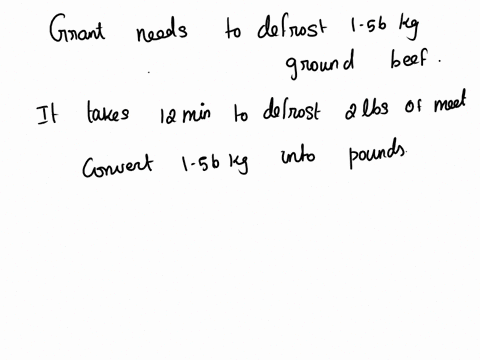 Grant needs to defrost 1.56 kg
ground beef.
It takes 12 min to defrost 2 lbs of meet
Convert 1.56 kg into pounds.